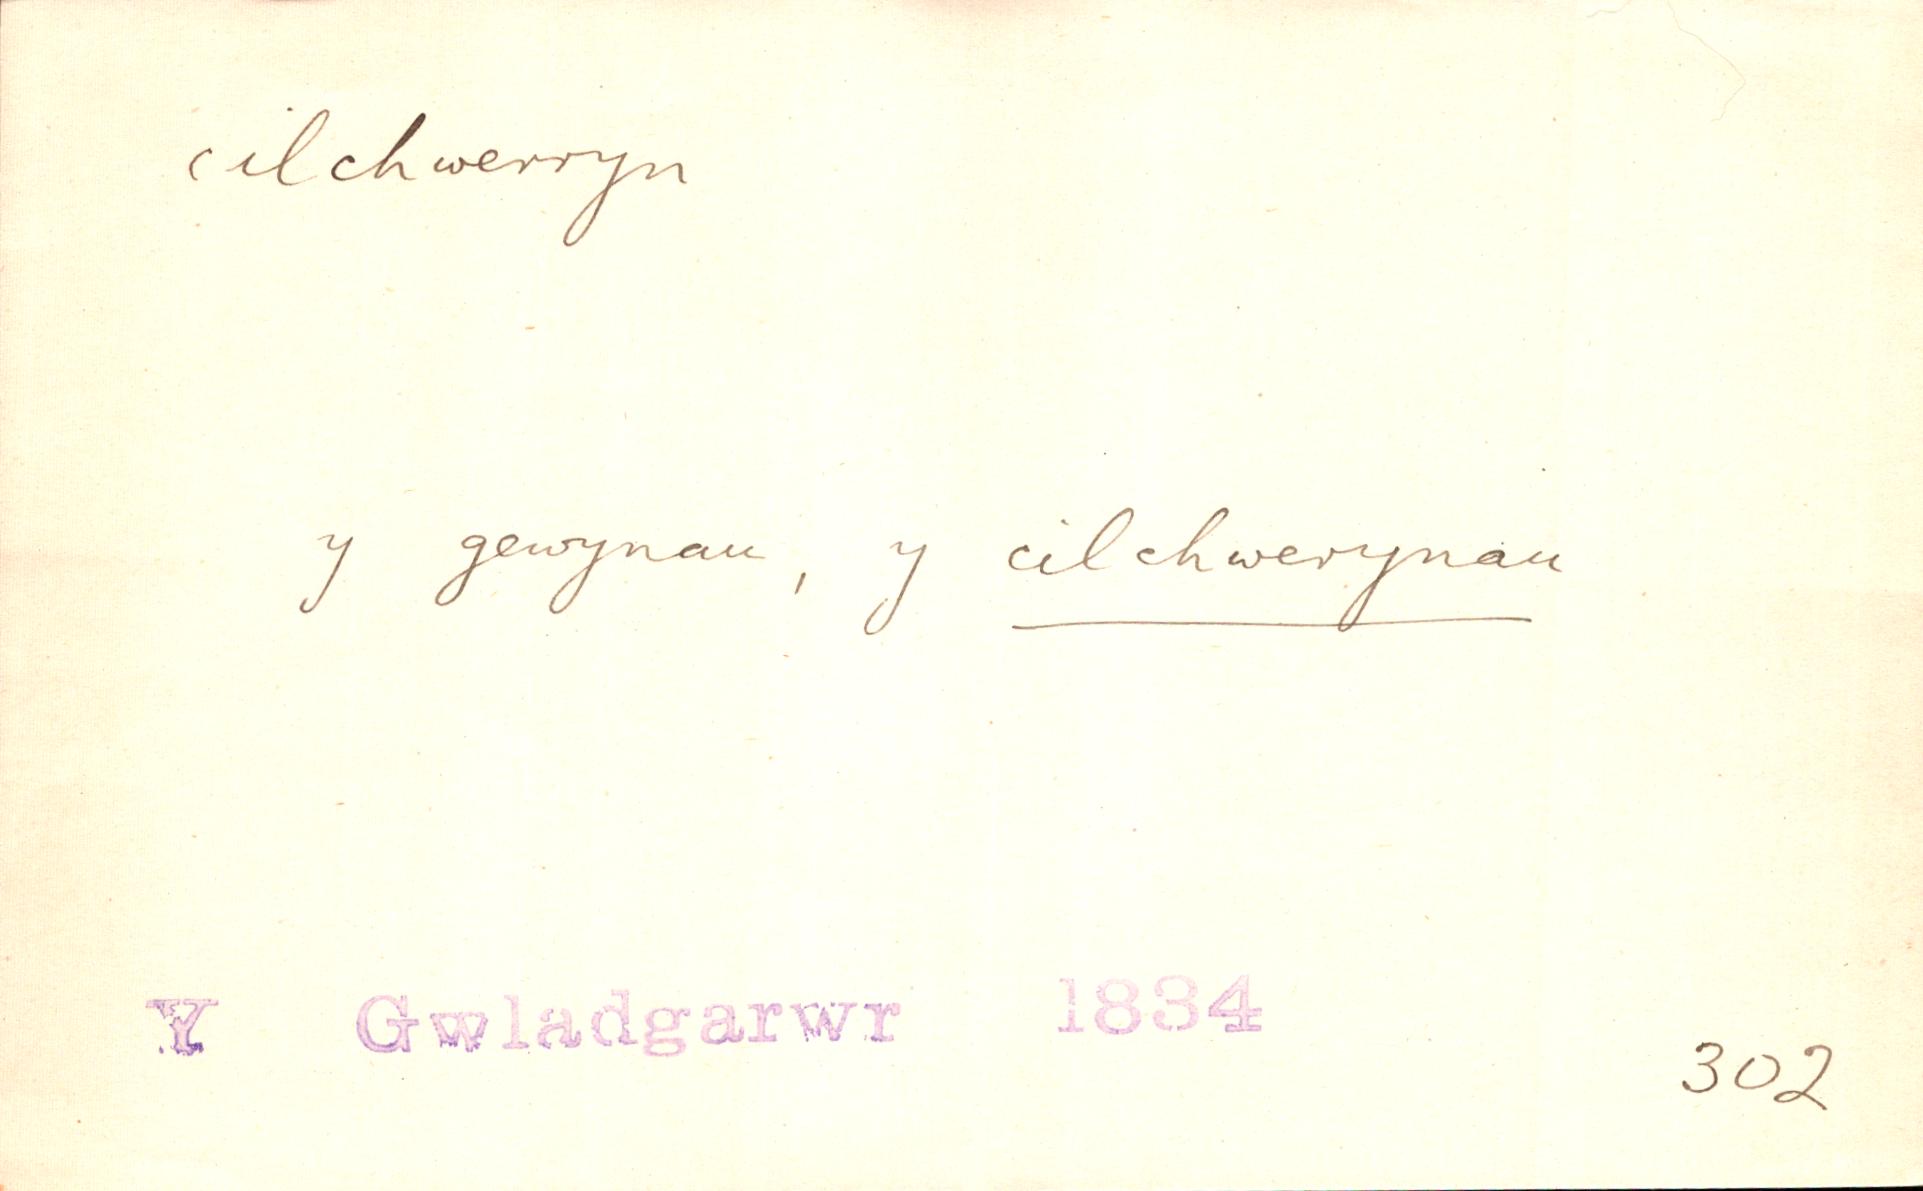 cilchwerryn
y gewynau, y cilchwerynau
Y Gwladgarwr 1834
302